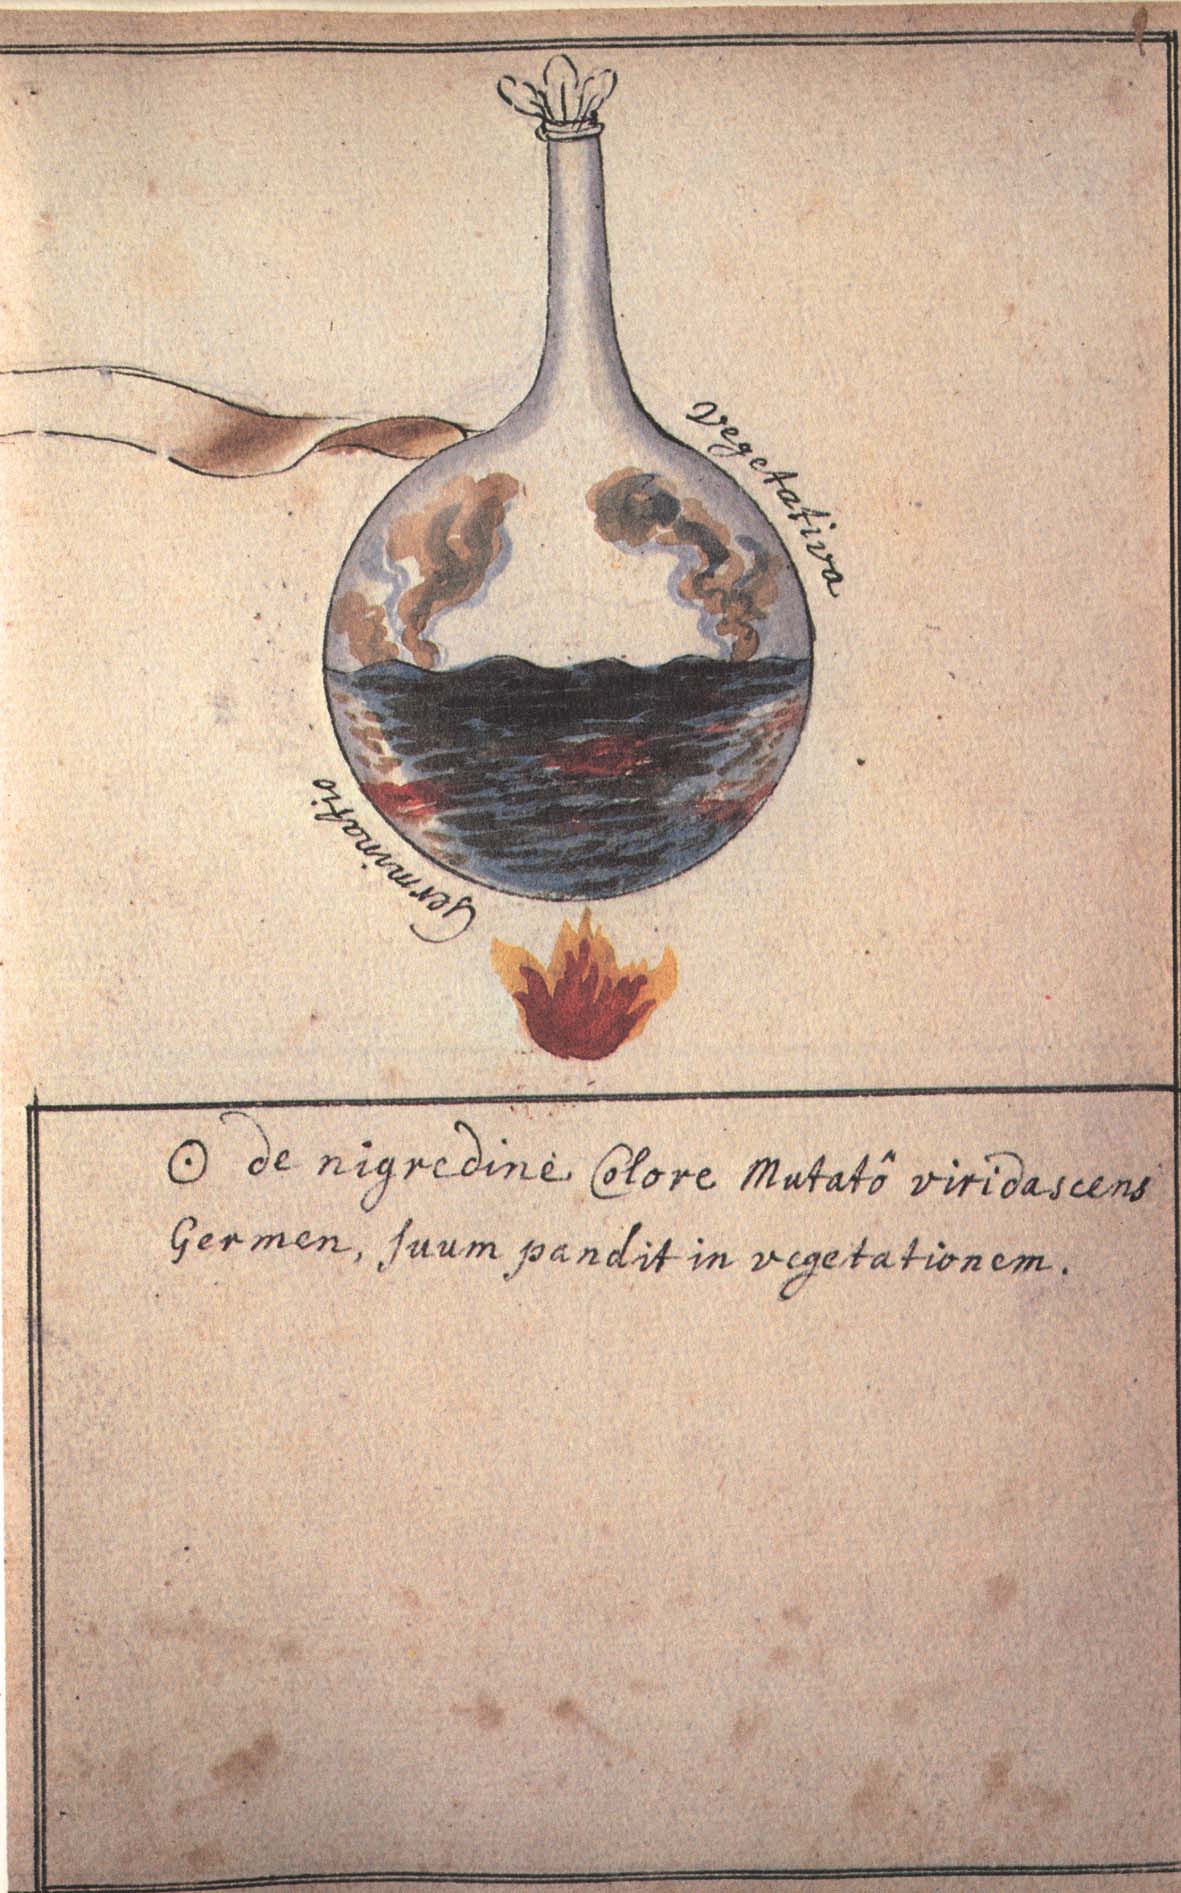 Vegetativa
Germinatio
☉ de nigredine Colore Mutatô viridascens
Germen, suum pandit in vegetationem.